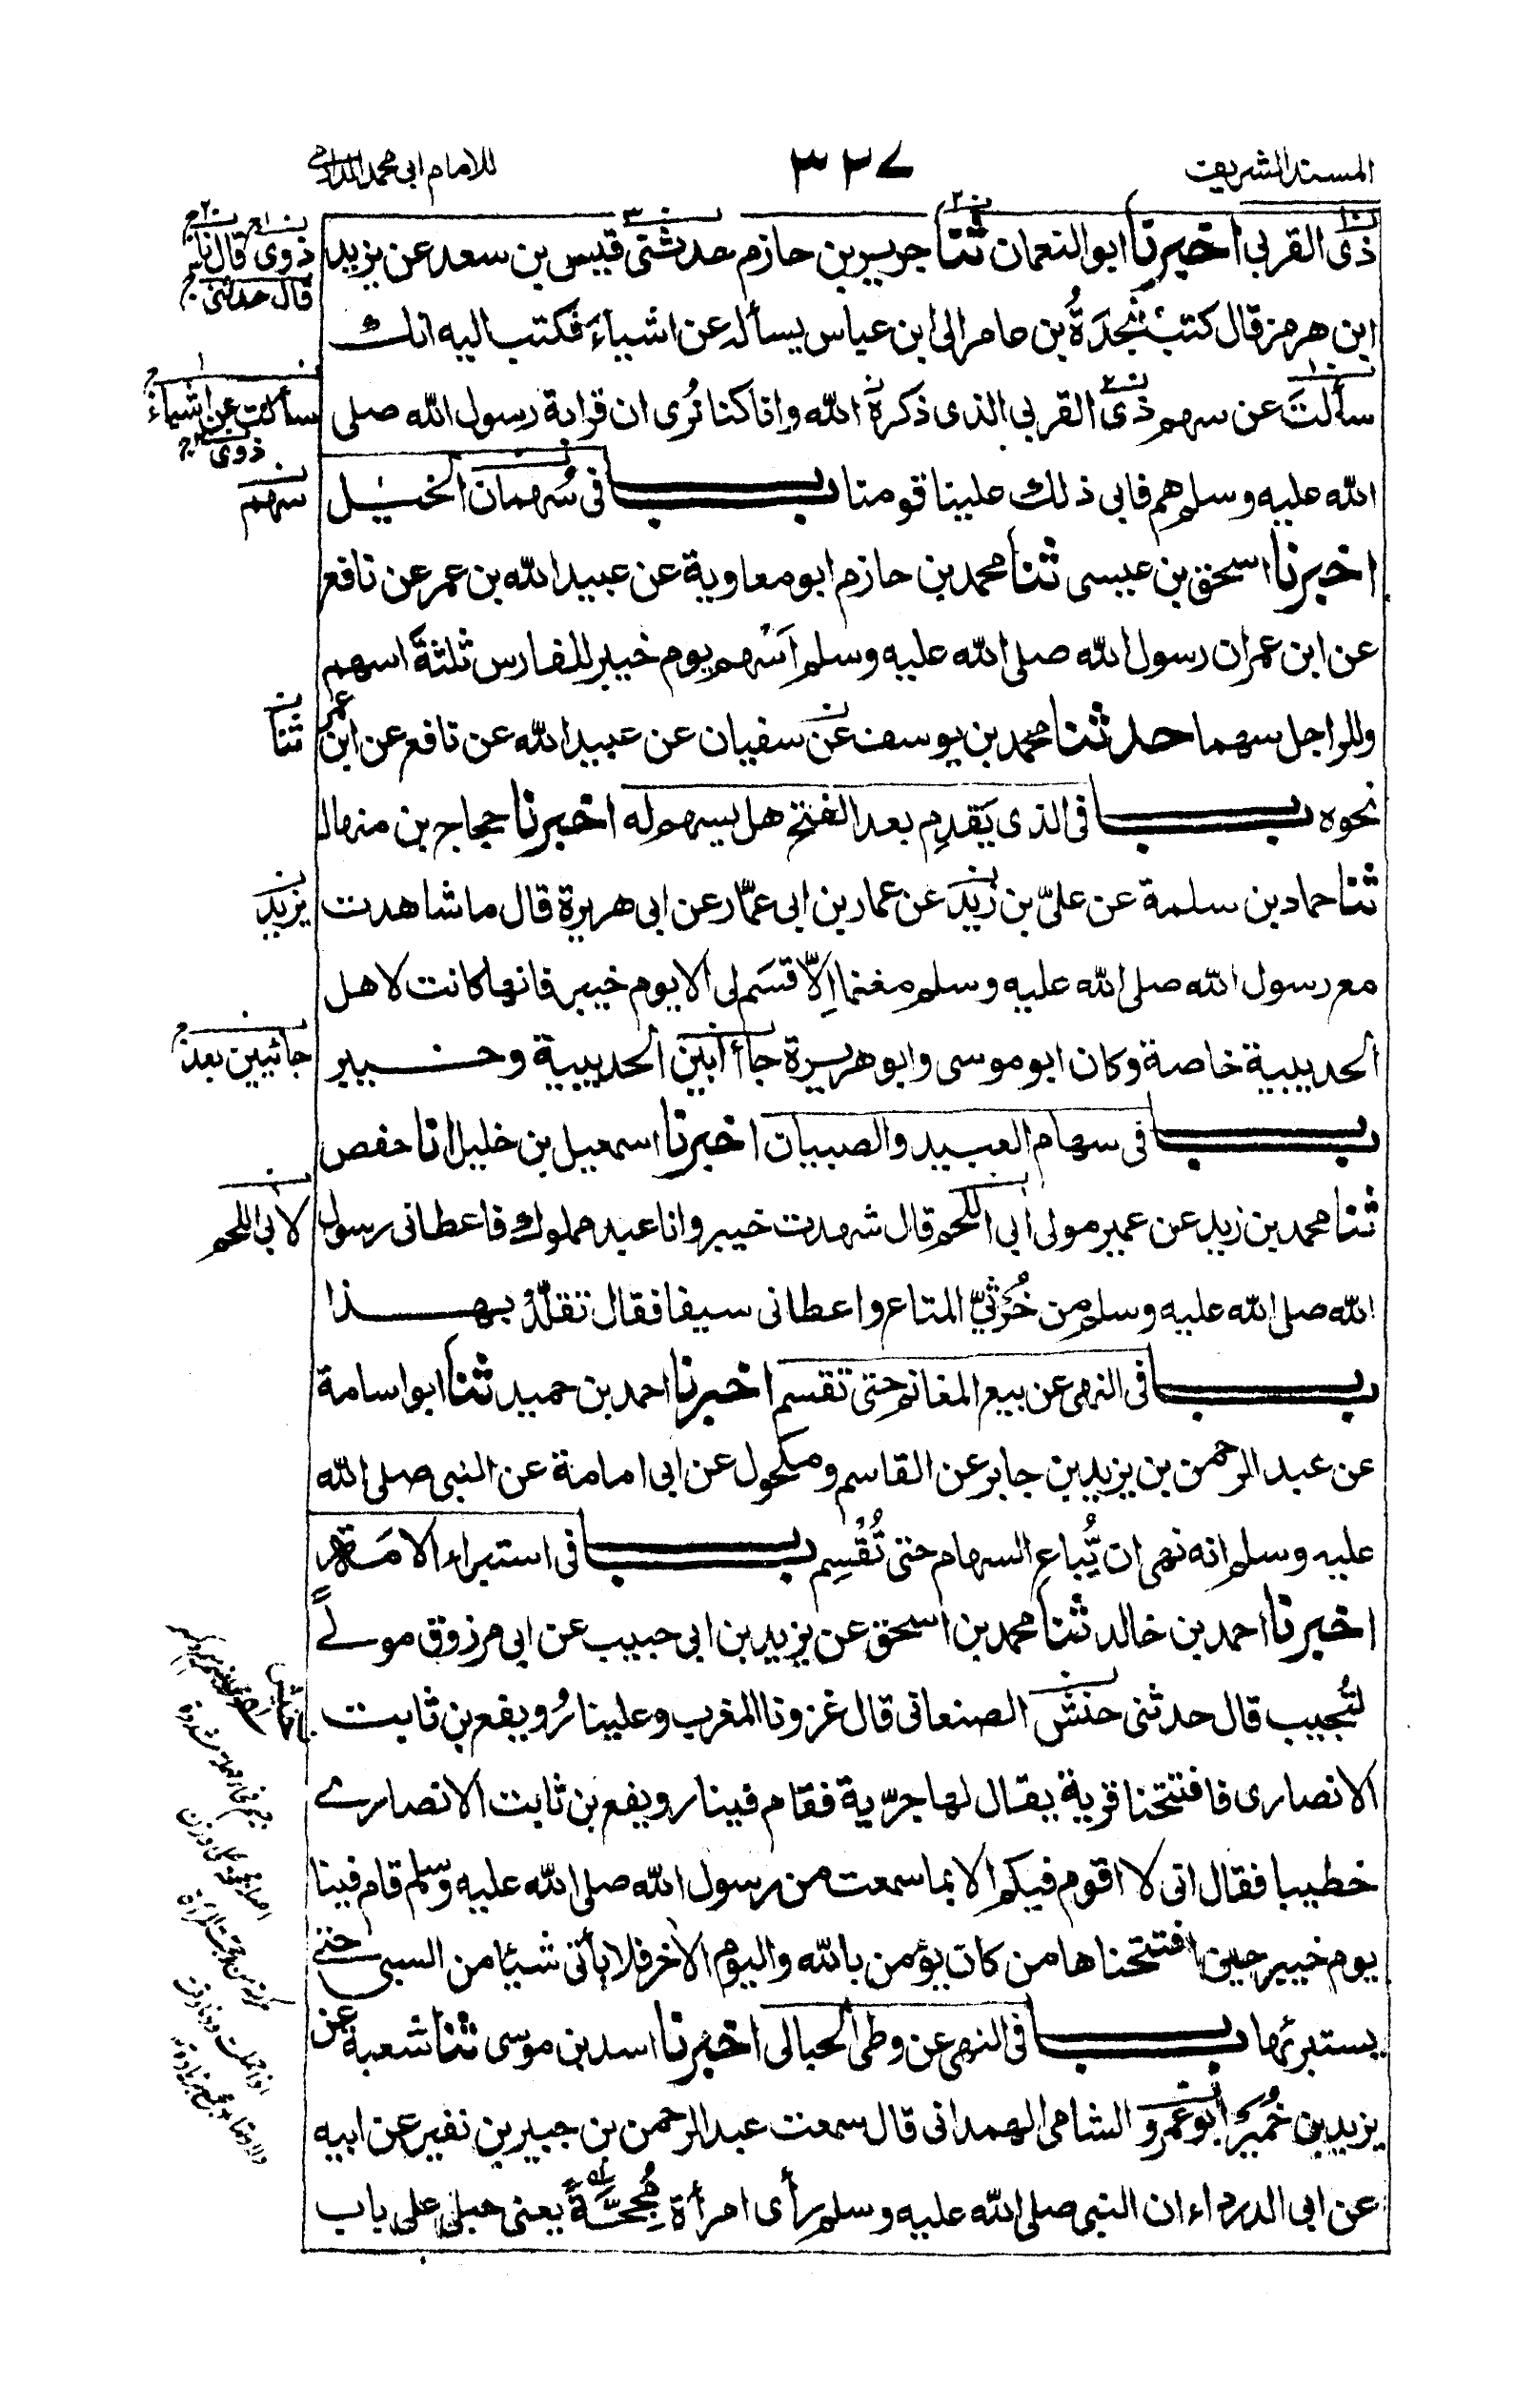 المسند الشريف ٣٢٧ للامام ابى محمد الدارمى
ذى القربى اخبرنا ابو النعمان ثنا جرير بن حازم حدثنى قيس بن سعد عن يزيد
ابن هرمز قال كتب نَجدَةُ بن عامر الى ابن عباس يسأله عن اشياءَ فكتب اليه انك
سألتَ عن سهم ذى القربى الذى ذكره الله وانا كنا نُرى ان قرابة رسول الله صلى
الله عليه وسلم هم فابى ذلك علينا قومنا باب فى سُهمان الخيل
اخبرنا اسحق بن عيسى ثنا محمد بن حازم ابو معاوية عن عبيد الله بن عمر عن نافع
عن ابن عمر ان رسول الله صلى الله عليه وسلم اَسْهم يوم خيبر للفارس ثلثةَ اسهم
وللراجل سهما حدثنا محمد بن يوسف عن سفيان عن عبيد الله عن نافع عن ابن عمر
نحوه باب فى الذى يَقدِم بعد الفتح هل يسهم له اخبرنا حجاج بن منهال
ثنا حماد بن سلمة عن علىّ بن زيد عن عمار بن ابى عمّار عن ابى هريرة قال ما شاهدت
مع رسول الله صلى الله عليه وسلم مغنما اِلّا قسَم لى الا يوم خيبر فانها كانت لاهل
الحديبية خاصة وكان ابو موسى وابو هريرة جاأ ابين الحديبية وخيبر
باب فى سهام العبيد والصبيان اخبرنا اسمعيل بن خليل انا حفص
ثنا محمد بن زيد عن عمير مولى ابى اللحم قال شهدت خيبر وانا عبد مملوك فاعطانى رسول
الله صلى الله عليه وسلم من خُرْثِيّ المتاع واعطانى سيفا فقال تقلّدْ بهذا
باب فى النهى عن بيع المغانم حتى تقسم اخبرنا احمد بن حميد ثنا ابو اسامة
عن عبد الرحمن بن يزيد بن جابر عن القاسم ومكحول عن ابى امامة عن النبى صلى الله
عليه وسلم انه نهى ان يُّباع السهام حتى تُقْسِم باب فى استبراء الامة
اخبرنا احمد بن خالد ثنا محمد بن اسحق عن يزيد بن ابى حبيب عن ابى مرزوق مولىً
لتُجيب قال حدثنى حنش الصنعانى قال غزونا المغرب وعلينا رُويفع بن ثابت
الانصارى فافتتحنا قرية يقال لها جرّبة فقام فينا رويفع بن ثابت الانصارى
خطيبا فقال انى لا اقوم فيكم الا بما سمعت من رسول الله صلى الله عليه وسلم قام فينا
يوم خيبر حين افتتحناها من كان يؤمن بالله واليوم الاخر فلا يأتى شيئا من السبى حتى
يستبرئها باب فى النهى عن وطى الحبالى اخبرنا اسد بن موسى ثنا شعبة عن
يزيد بن خُمَيْر ابو عمرو الشامى الهمدانى قال سمعت عبد الرحمن بن جبير بن نفير عن ابيه
عن ابى الدرداء ان النبى صلى الله عليه وسلم رأى امرأة مُجِحَّةً يعنى حبلى على باب
ذوى قال نا
قال حدثنى
سألت عن اشياءَ
ذوى
سهم
ثنا
يزيد
جائيين بعد
لابى اللحم